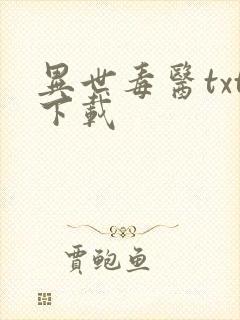 異世毒醫txt
下載
賈鮑魚